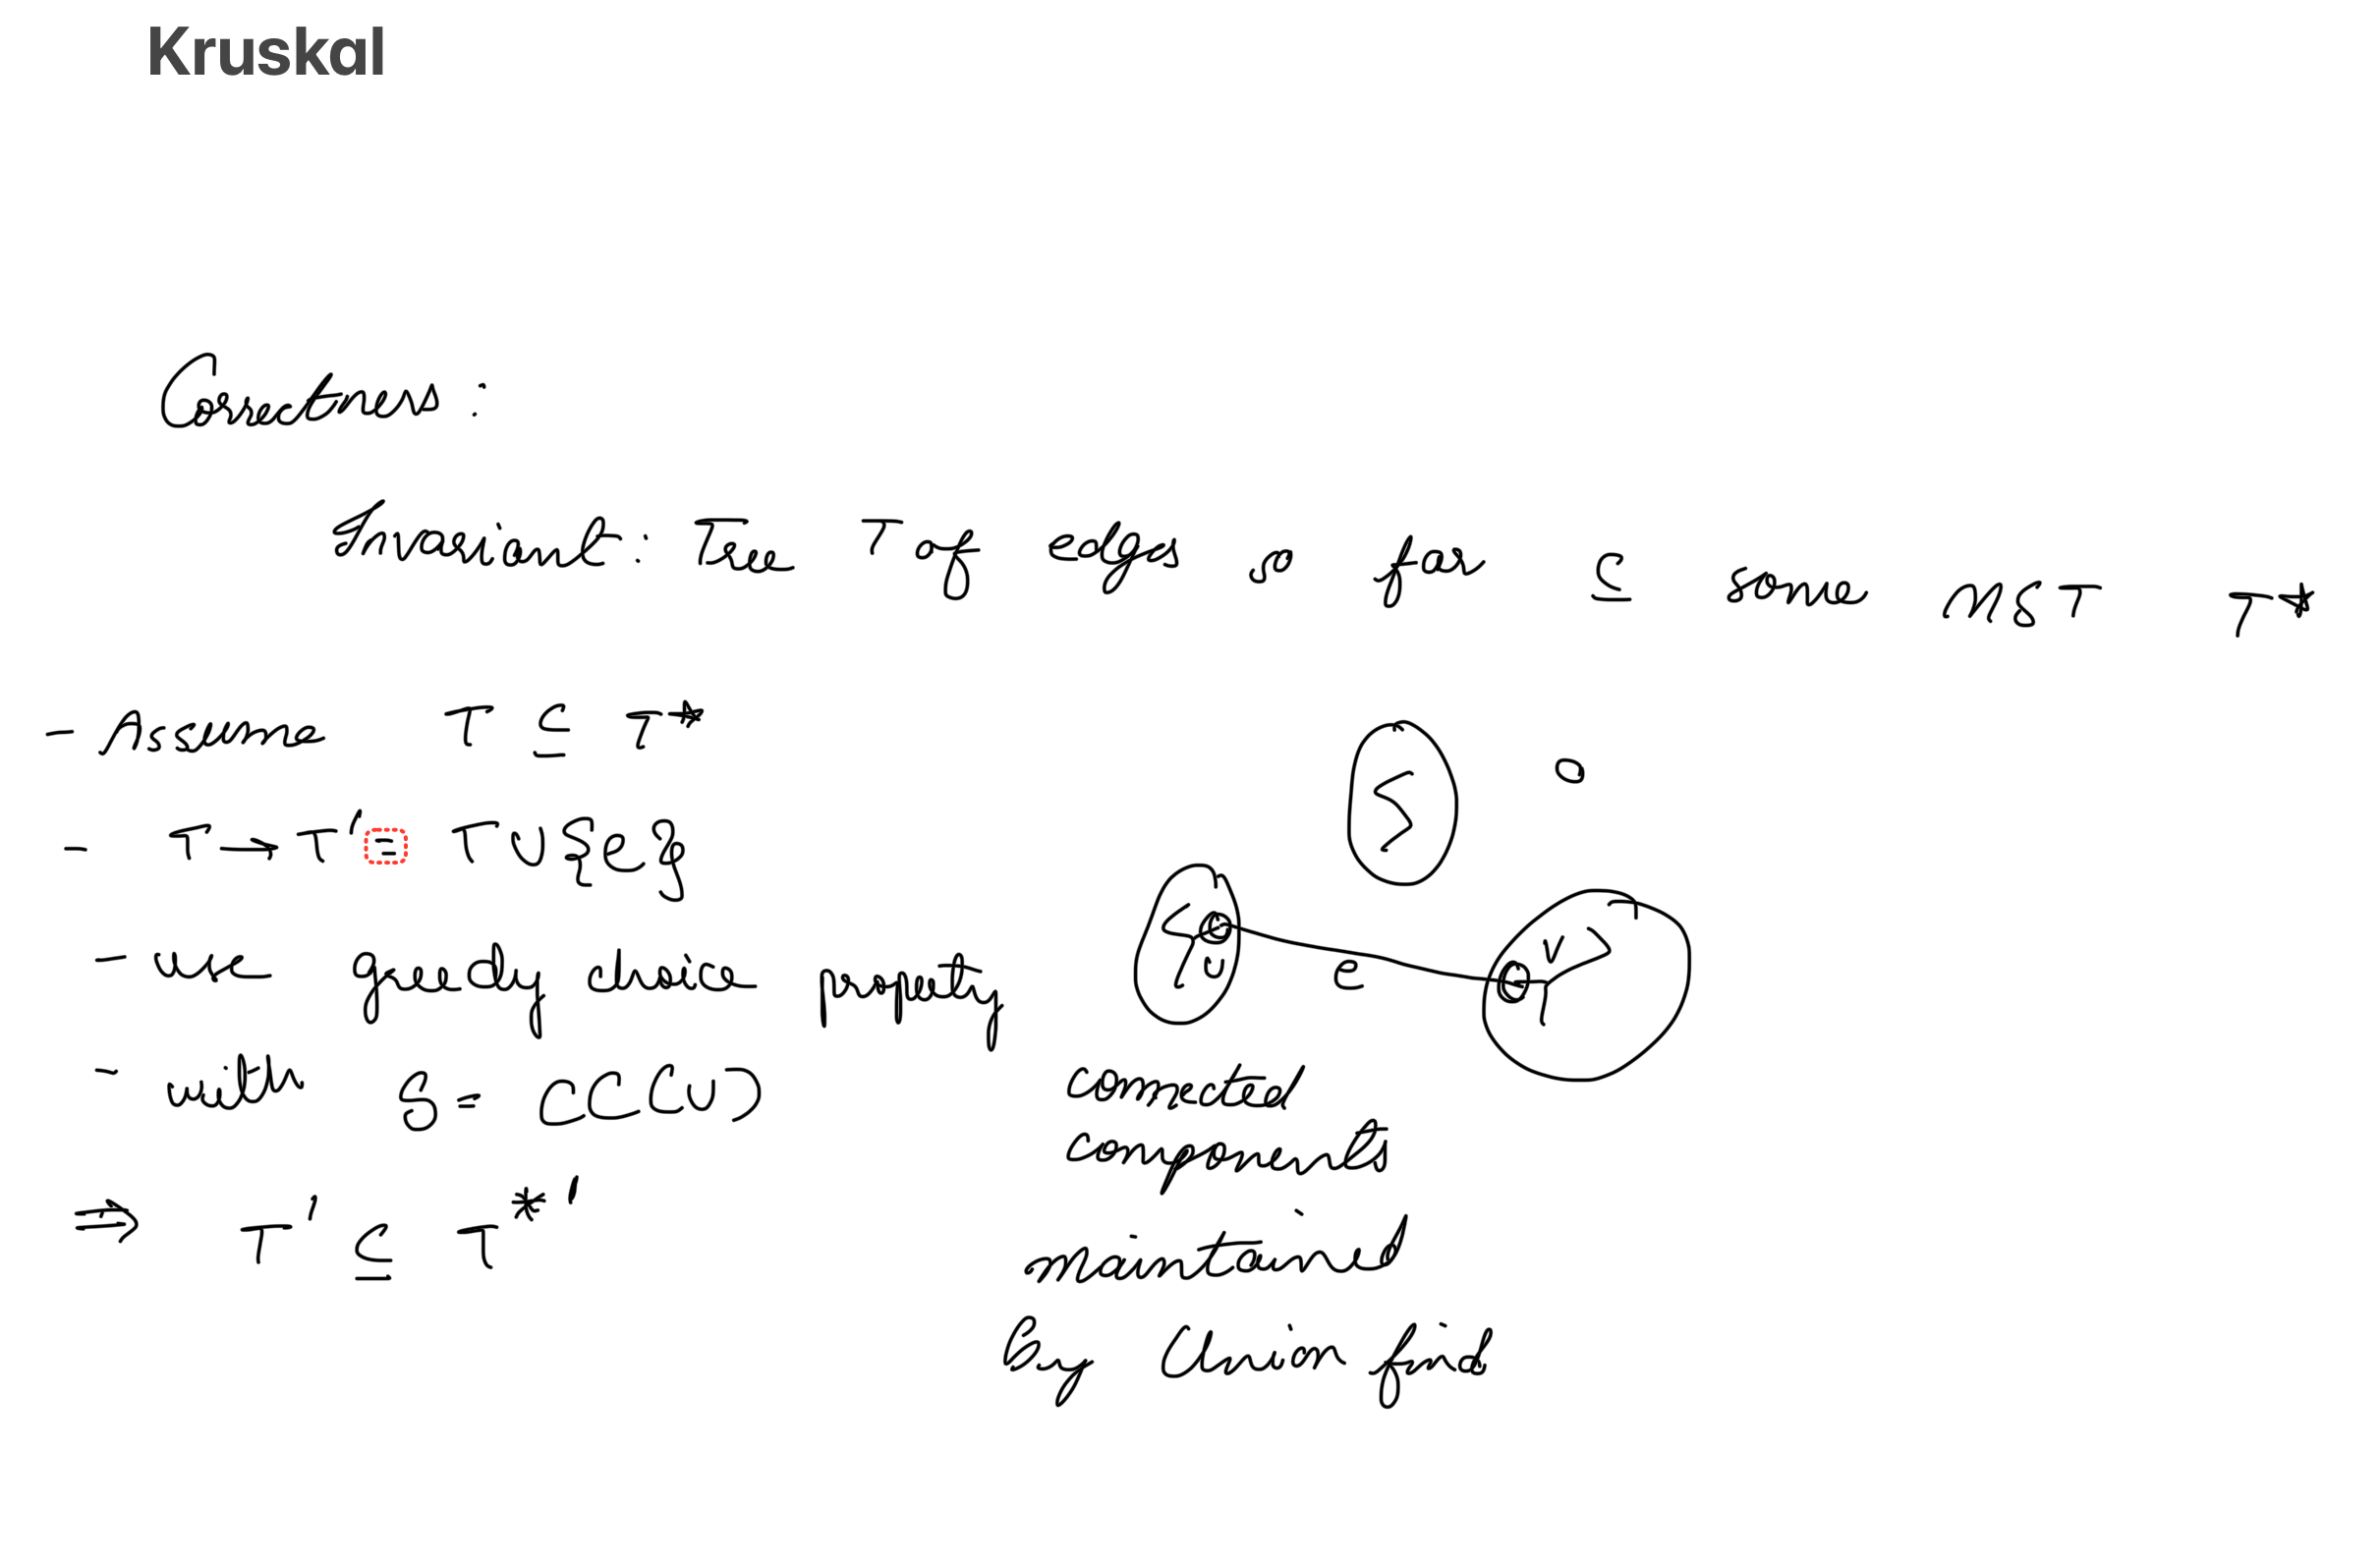 Kruskal
Correctness:
Invariant: Tree T of edges so far ⊆ some MST T*
- Assume T ⊆ T*
- T → T' = T ∪ {e}
- use greedy choice property
- with S = CC(u)
⇒ T' ⊆ T*'
u e v
connected
components
maintained
By Union find